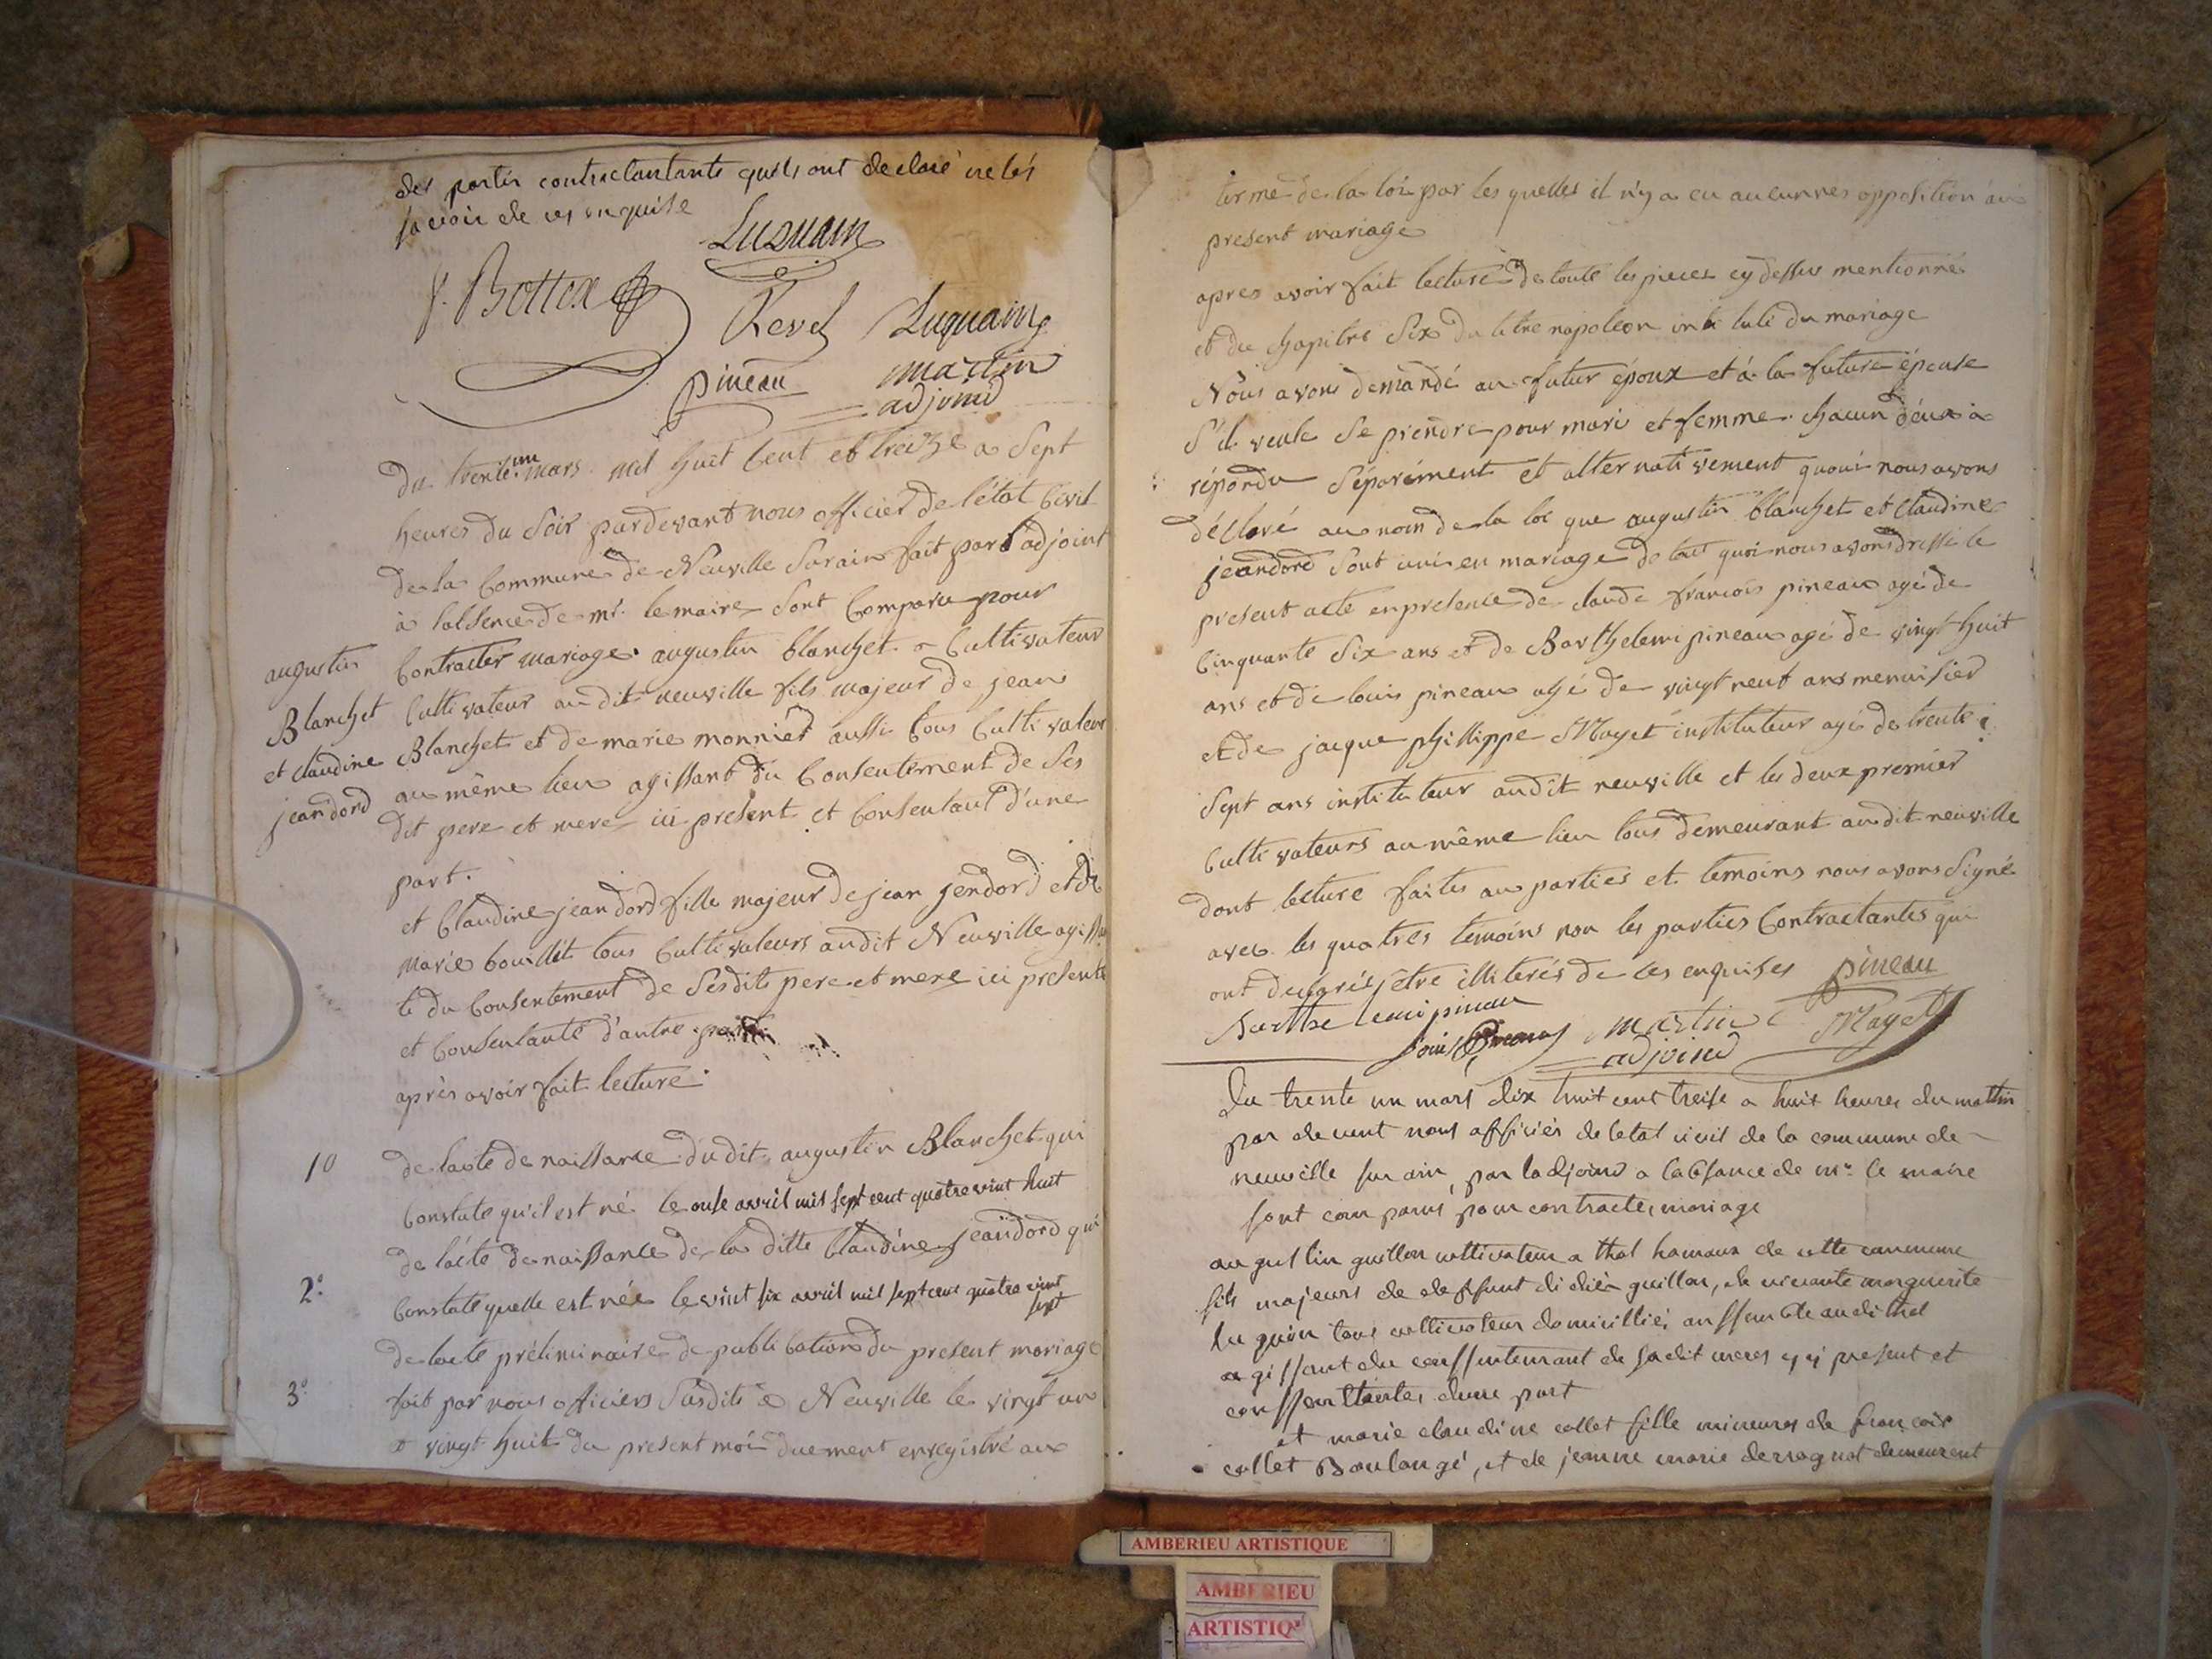 des partis contractantante quils ont declaré ne les
savoir de ces enquise
Luquain
f. Bottex
Revel Luquain
pineau martin
adjoind
Du trente un mars mil huit Cent et treize a Sept
heures du Soir pardevant nous officier de l'état Civil
de la Commune de Neuville Surain fait par l'adjoint
à l'absence de mr. le maire Sont Comparu pour
augustin
Blanchet
et claudine
jeandord
Contracter mariage. augustin blanchet Cultivateur
Cultivateur audit neuville fils majeur de jean
Blanchet et de marie monnier aussi tous Cultivateur
au même lieu agissant du Consentement de Ses
dit pere et mere ici présent et Consentant d'une
part.
et Claudine jeandord fille majeur de jean jendord et de
marie bouillet tous Cultivateurs audit Neuville agissan
te du Consentement de Sesdits pere et mere ici présents
et Consentante d'autre part
après avoir fait lecture
1º de l'acte de naissance dudit augustin Blanchet qui
Constate qu'il est né le onse avril mil sept cent quatre vint huit
2º de l'acte de naissance de la ditte Claudine jeandord qui
Constate quelle est née le vint six avril mil sept cent quatre vint
sept
3º de l'acte préliminaire de publications du present mariage
fait par nous officiers Susdits à Neuville le vingt un
et vingt huit du present moi duement enregistré aux
terme de la loi par les quelles il n'y a eu aucunnes opposition au
present mariage
apres avoir fait lecture de toute les pieces cy dessus mentionné
et du chapitre Six du titre napoleon intitulé du mariage
Nous avons demandé au futur époux et à la future épouse
S'il veule Se prendre pour mari et femme chacun d'eux a
répondu Séparément et alternativement quoui nous avons
déclaré au nom de la loi que augustin blanchet et Claudine
jeandord Sont uni en mariage de tout quoi nous avons dressé le
present acte en presence de claude francois pineau agé de
Cinquante Six ans et de Barthelemi pineau agé de vingt huit
ans et de louis pineau agé de vingt neuf ans menuisier
et de jacque phillippe Mayet instituteur agé de trente
Sept ans instituteur audit neuville et les deux premier
Cultivateurs au même lieu tous demeurant audit neuville
dont lecture faites aux parties et temoins nous avons Signé
avec les quatres temoins non les parties Contractantes qui
ont être illiterés de ces enquises pineau
barthelemi pineau
louis pineau martin Mayet
adjoind
Du trente un mars dix huit cent treise a huit heures du mattin
par devent nous afficiés de letat civil de la commune de
neuville sur ain, par ladjoind a labsance de mr. le maire
sont comparus pour contracter mariage
augustin guillon cultivateur a thol hamaux de cette commune
fils majeurs de deffunt didier guillon, de vivante marguerite
luquin tous cultivateur domicilliés anssemble audi thol
agissant du conssentemant de sadit meres y çi present et
conssenttantes dune part
et marie claudine collet fille mineures de francois
collet Boulangé, et de jeanne marie demeurent
AMBERIEU ARTISTIQUE
AMBERIEU
ARTISTIQU